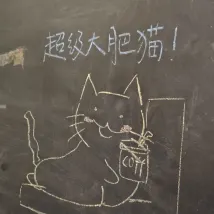 超级大肥猫！
COFF